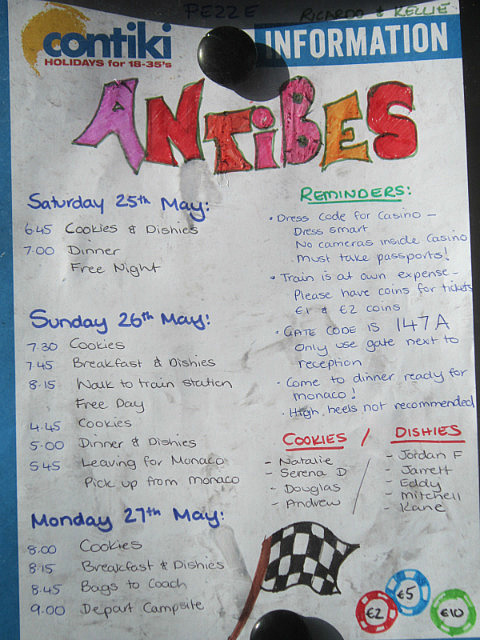 PEZZE RICARDO & KELLIE
contiki
HOLIDAYS for 18-35's
INFORMATION
ANTiBES
Saturday 25th May:
6.45 Cookies & Dishies
7.00 Dinner
Free Night
Sunday 26th May:
7.30 Cookies
7.45 Breakfast & Dishies
8.15 Walk to train station
Free Day
4.45 Cookies
5.00 Dinner & Dishies
5.45 Leaving for Monaco
Pick up from monaco
Monday 27th May:
8.00 Cookies
8.15 Breakfast & Dishies
8.45 Bags to Coach
9.00 Depart Campsite
REMINDERS:
• Dress Code for Casino -
Dress smart
No cameras inside Casino
Must take passports!
• Train is at own expense -
Please have coins for tickets
€1 & €2 coins
• GATE CODE IS 147A
Only use gate next to
reception
• Come to dinner ready for
monaco!
• High heels not recommended
COOKIES / DISHIES
- Natalie
- Serena D
- Douglas
- Andrew
- Jordan F
- Jarrett
- Eddy
- mitchell
- Kane
€2
€5
€10